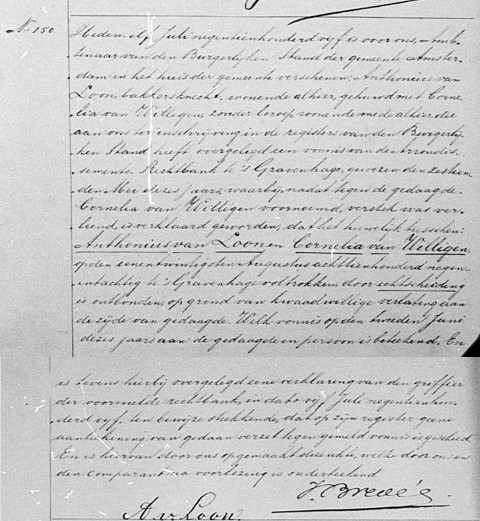 No 150.
Heden, elf Juli negentienhonderd vijf is voor ons, Amb-
tenaar van den Burgerlijken Stand der gemeente Amster-
dam in het huis der gemeente verschenen: Anthonius van
Loon, bakkersknecht, wonende alhier, gehuwd met Corne-
lia van Willigen, zonder beroep, wonende mede alhier, die
aan ons ter inschrijving in de registers van den Burgerlij-
ken Stand heeft overgelegd een vonnis van de Arrondis-
sements-Rechtbank te 's Gravenhage, gewezen den zestien-
den Mei dezes jaars, waarbij, nadat tegen de gedaagde
Cornelia van Willigen voornoemd, verstek was ver-
leend, is verklaard geworden, dat het huwelijk tusschen:
Anthonius van Loon en Cornelia van Willigen,
op den eenentwintigsten Augustus achttienhonderd negen-
entachtig te 's Gravenhage voltrokken, door echtscheiding
is ontbonden, op grond van kwaadwillige verlating aan
de zijde van gedaagde. Welk vonnis op den tweeden Juni
dezes jaars aan de gedaagde in persoon is beteekend. En
is tevens hierbij overgelegd eene verklaring van den griffier
der voormelde rechtbank, in dato vijf Juli negentienhon-
derd vijf, ten bewijze strekkende, dat op zijn register geene
aanteekening van gedaan verzet tegen gemeld vonnis is geschied.
En is hiervan door ons opgemaakt deze akte, welke door ons en
den Comparant na voorlezing is onderteekend.
A. v. Loon.